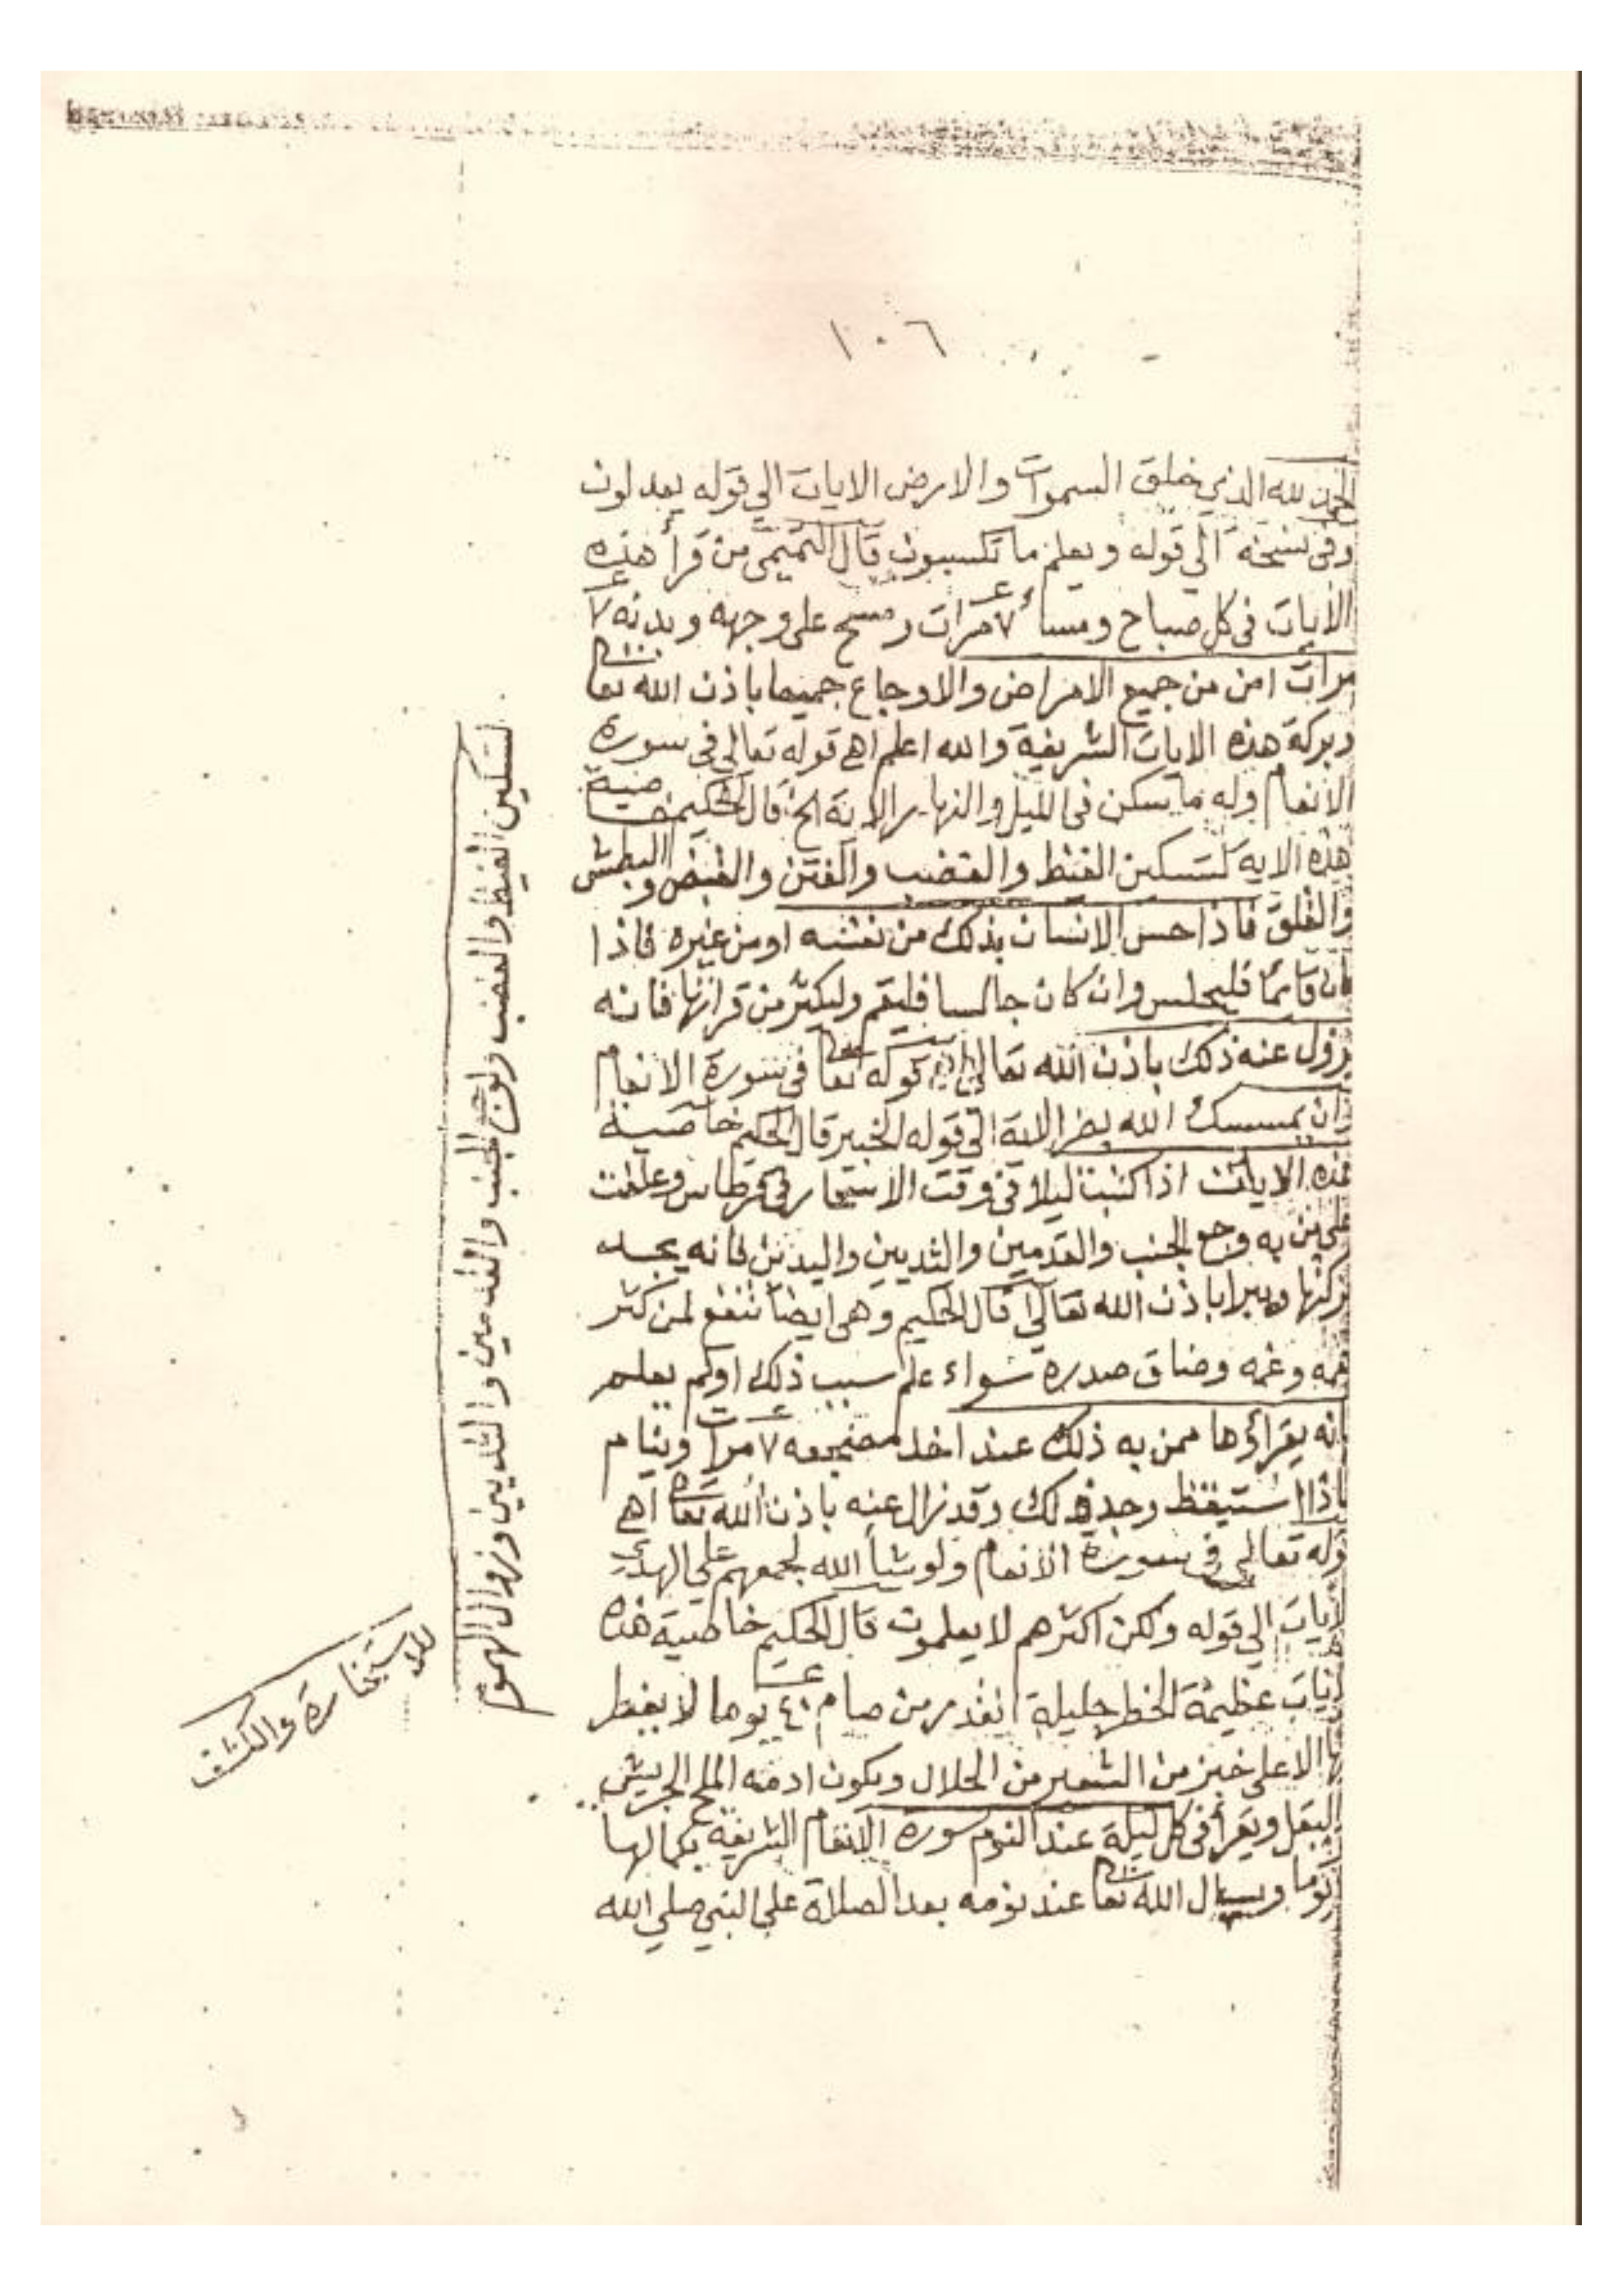 ١٠٦
الحمد لله الذي خلق السموات والارض الايات الي قوله يعدلون
وفى نسخة الي قوله ويعلم ما تكسبون قال التميمى من قرأ هذه
الايات فى كل صباح ومساء ٧ مرات ومسح على وجهه وبدنه ٧
مرات امن من جميع الامراض والاوجاع جميعا باذن الله تعا
وبركة هذه الايات الشريفة والله اعلم اهى قوله تعالي فى سورة
الانعام وله ما سكن فى الليل والنهار الاية الخ قال الحكيم خاصية
هذه الاية لتسكين الغيظ والغضب والفتن والقبض والبطش
والقلق فاذا حس الانسان بذلك من نفسه او من غيره فاذا
كان قائما فليجلس وان كان جالسا فليقم وليكثر من قرائتها فانه
يزول عنه ذلك باذن الله تعالي قوله تعا فى سورة الانعام
وان يمسسك الله بضر الاية الي قوله الخبير قال الحكيم خاصية
هذه الايات اذا كتبت ليلا فى وقت الاسحار فى قرطاس وعلقت
على من به وجع الجنب والقدمين والثديين واليدين فانه يجد
بركتها ويبرا باذن الله تعالي قال الحكيم وهى ايضا تنفع لمن كثر
همه وغمه وضاق صدره سواء علم سبب ذلك او لم يعلم
انه يقراؤها ممن به ذلك عند اخذ مضجعه ٧ مرات وينام
فاذا استيقظ وجد ذلك وقد زال عنه باذن الله تعا اهى
قوله تعالي فى سورة الانعام ولو شأ الله لجمعهم علي الهدي
الايات الي قوله ولكن اكثرهم لا يعلمون قال الحكيم خاصية هذه
الايات عظيمة الخطر جليلة القدر من صام ٤٠ يوما لا يفطر
الا على خبز من الشعير من الحلال ويكون ادمه الملح الجريش
والبقل ويقرأ فى كل ليلة عند النوم سورة الانعام الشريفة بكمالها
يوما ويسال الله تعا عند نومه بعد الصلاة علي النبي صلي الله
لتسكين الغيظ والغضب ولوجع الجنب والقدمين والثديين وزوال الهموم
للاستخارة والكشف